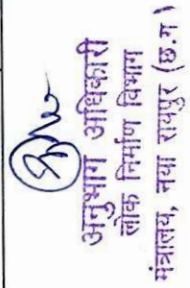 अनुभाग अधिकारी
लोक निर्माण विभाग
मंत्रालय, नवा रायपुर (छ.ग)